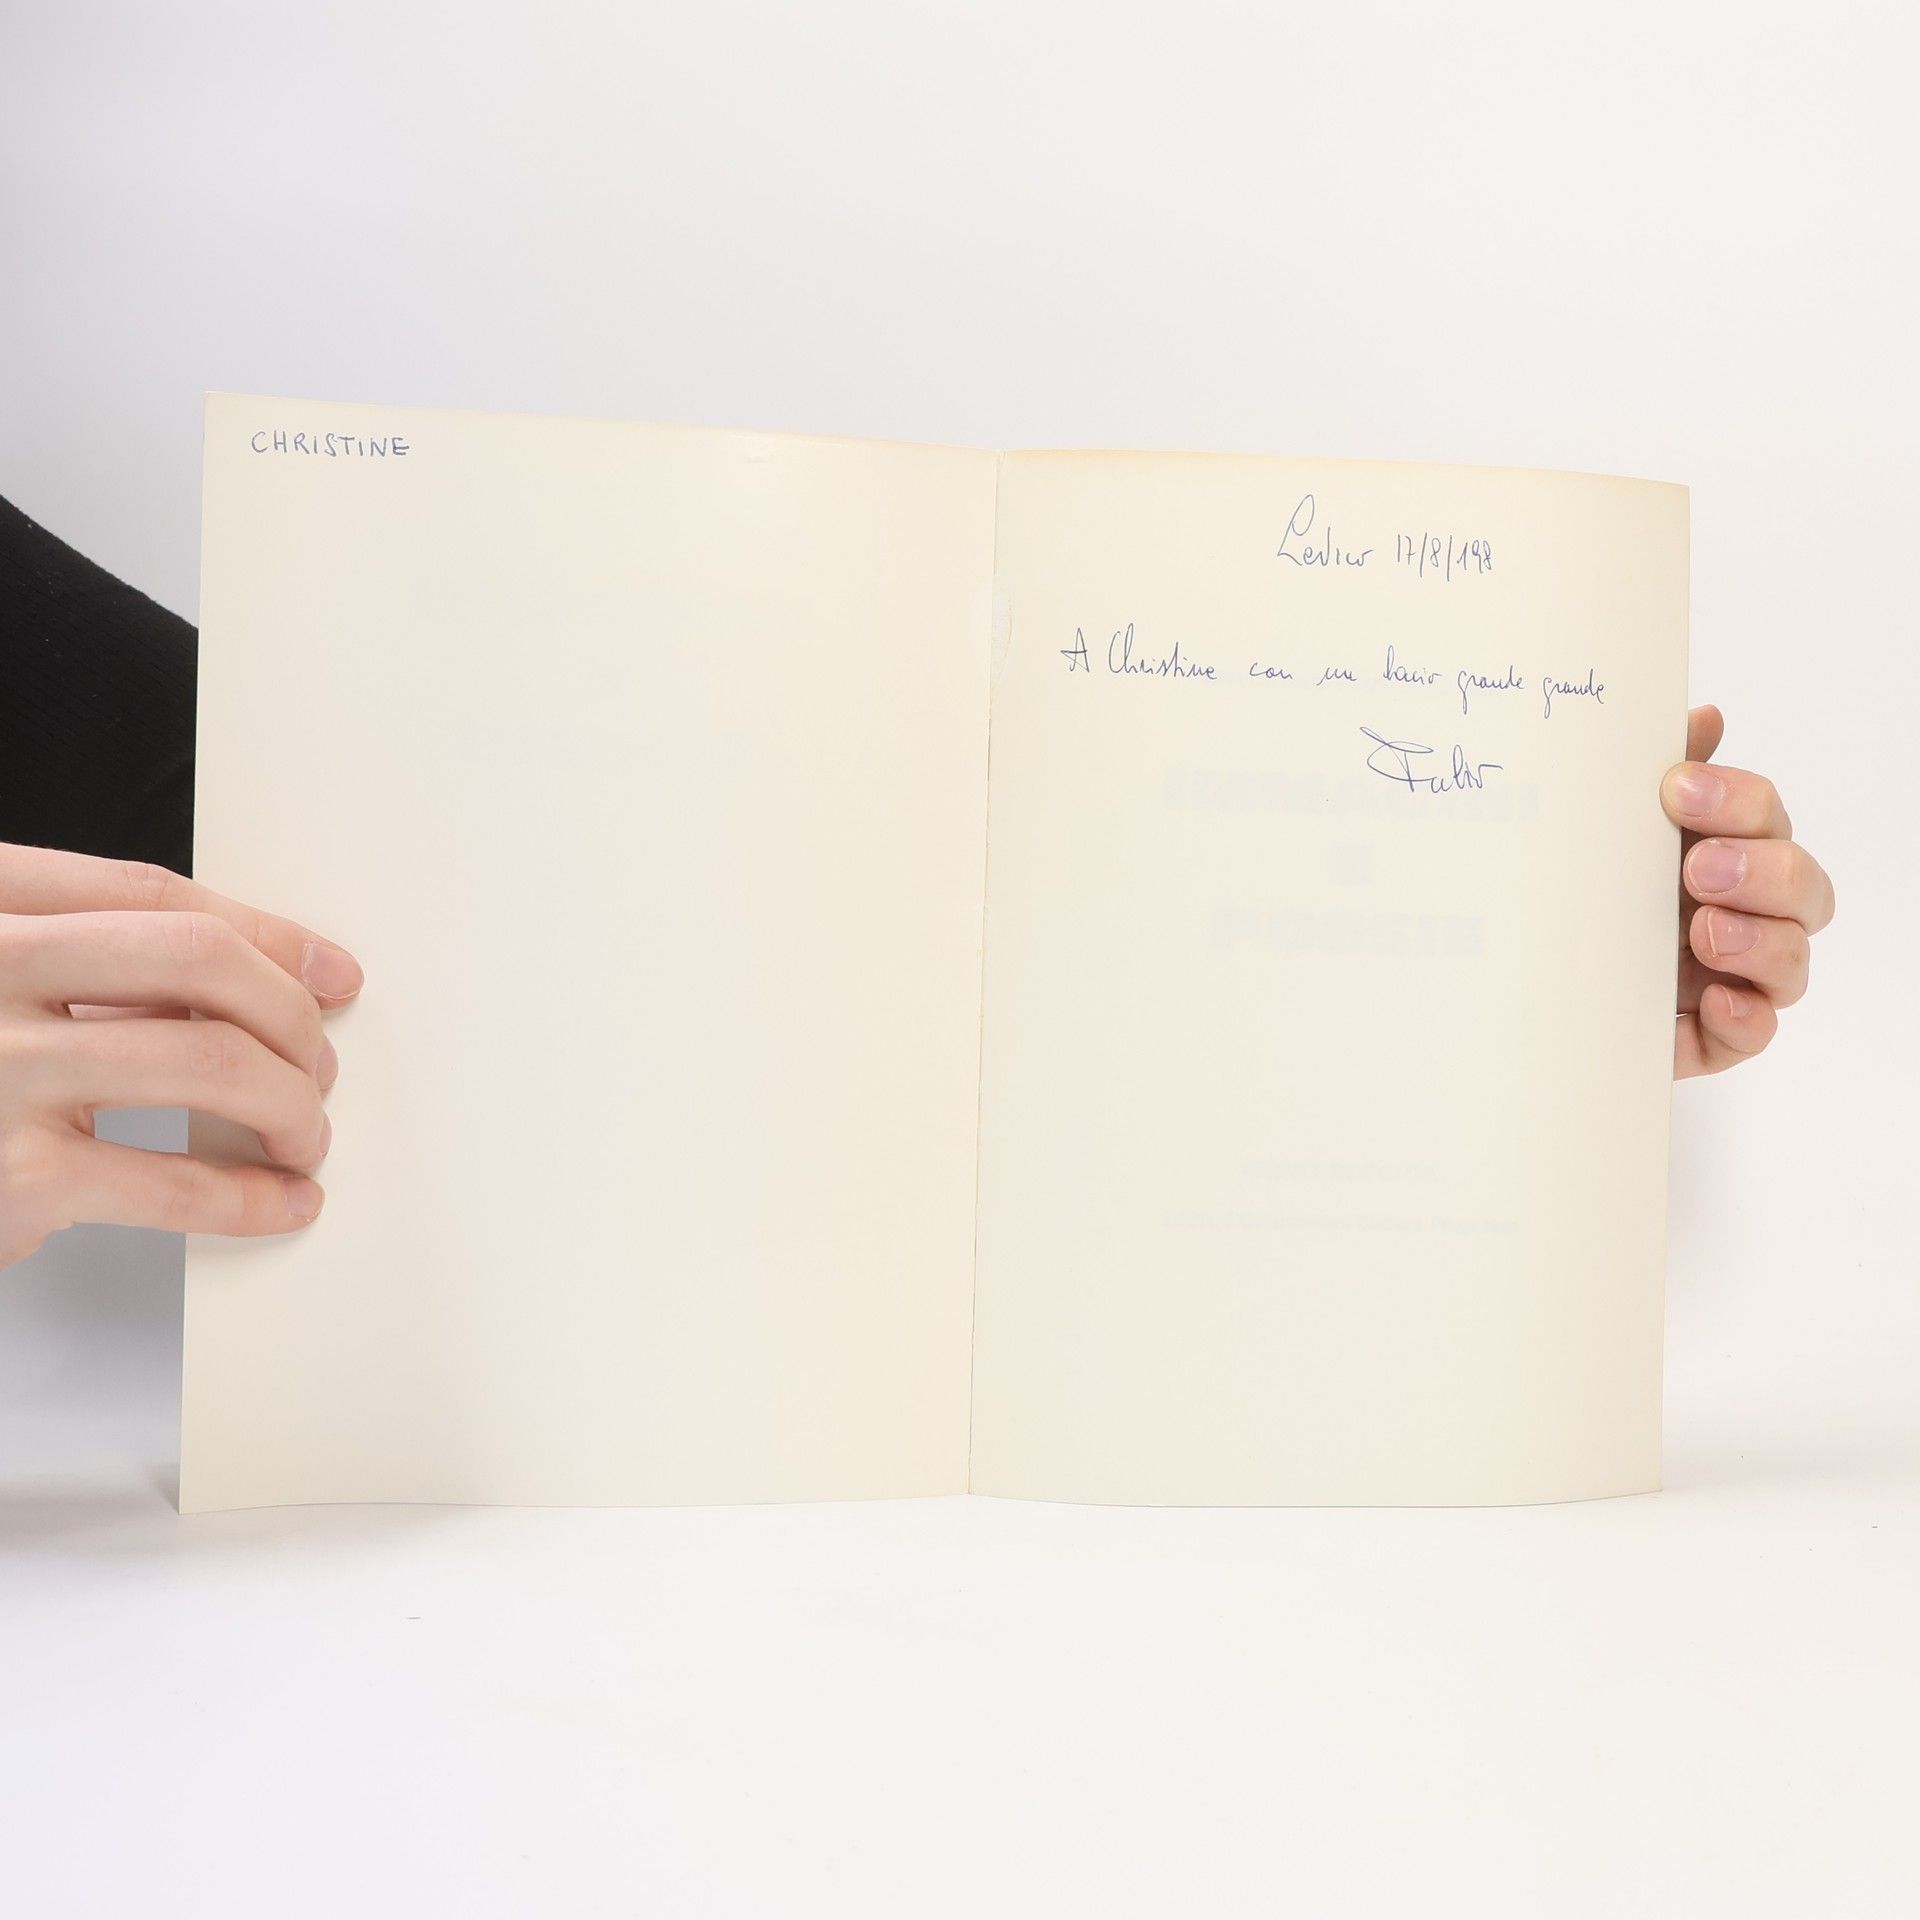 CHRISTINE
Levico 17/8/198
A Christine con un bacio grande grande
Fabio
POESIE